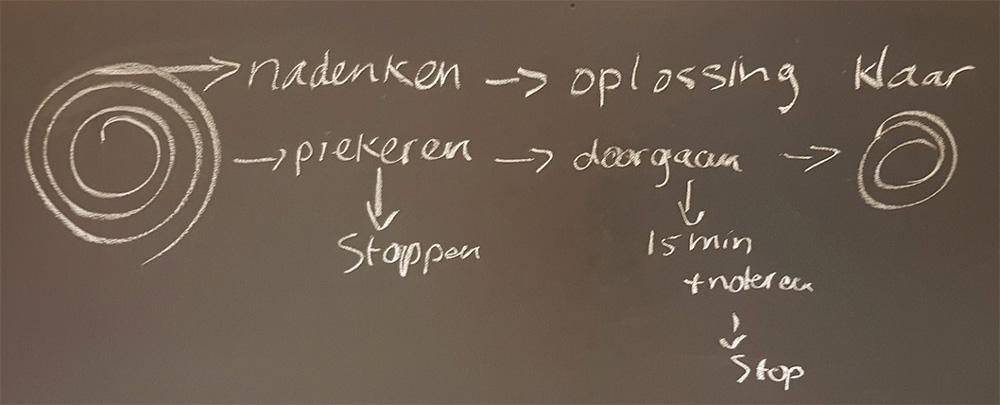 nadenken → oplossing klaar
→ piekeren → doorgaan →
↓ ↓
Stoppen 15 min
+ noteren
↓
Stop